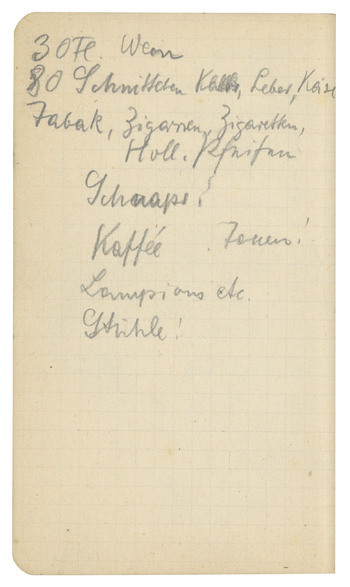 30 Fl. Wein
80 Schnittchen Kalbs, Leber, Käse
Tabak, Zigarren, Zigaretten,
Holl. Pfeifen
Schnaps?
Kaffée
Lampions etc.
Stühle!